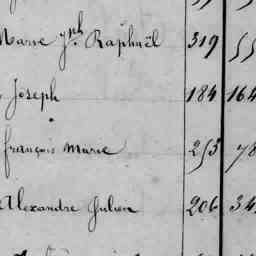 Marie Jph. Raphaël 319 55
Joseph 184 164
françois Marie 253 78
Alexandre Julien 206 34